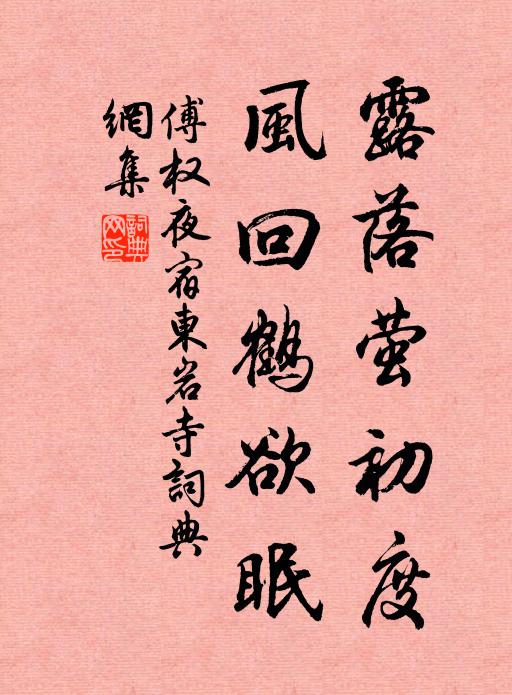 露落萤初度
風回鶴欲眠
傅权夜宿東岩寺詞典
網集
詞典网印